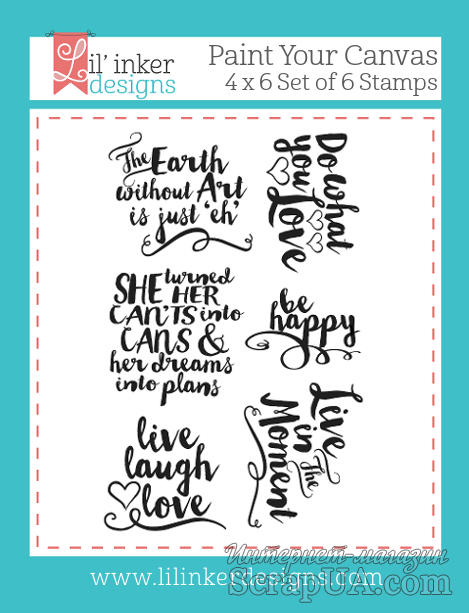 Lil' inker
designs
Paint Your Canvas
4 x 6 Set of 6 Stamps
The Earth
without Art
is just 'eh'
Do what
you
Love
SHE turned
HER
CAN'TS into
CANS &
her dreams
into plans
be
happy
live
laugh
love
Live
in The
Moment
www.lilinkerdesigns.com
Интернет-магазин
ScrapUA.com